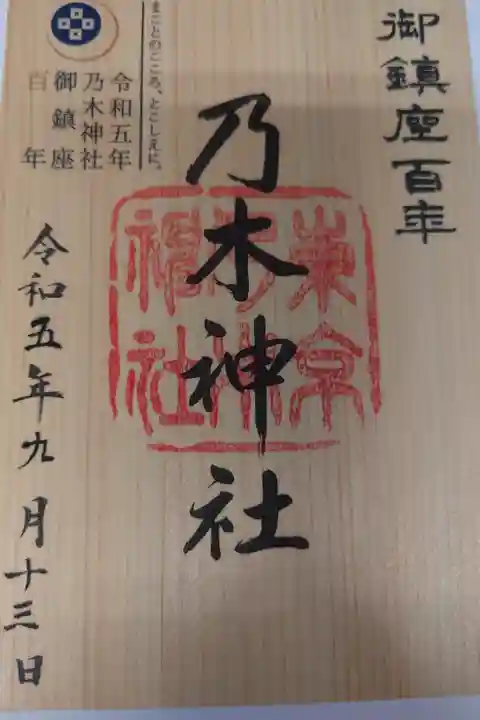 御鎮座百年
東京
乃木
神社
乃木神社
まことのこころ、とこしえに。
令和五年
乃木神社
御鎮座
百年
令和五年九月十三日